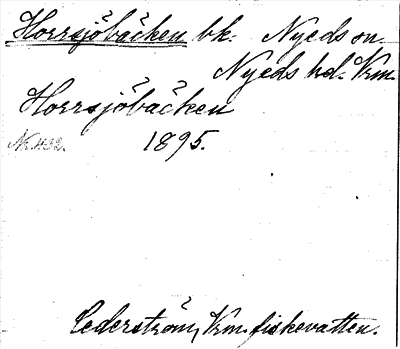 Horrsjöbäcken bk. Nyeds sn.
Nyeds hd. Vrm.
Horrsjöbäcken
1895.
Cederström, Vrm. fiskevatten.